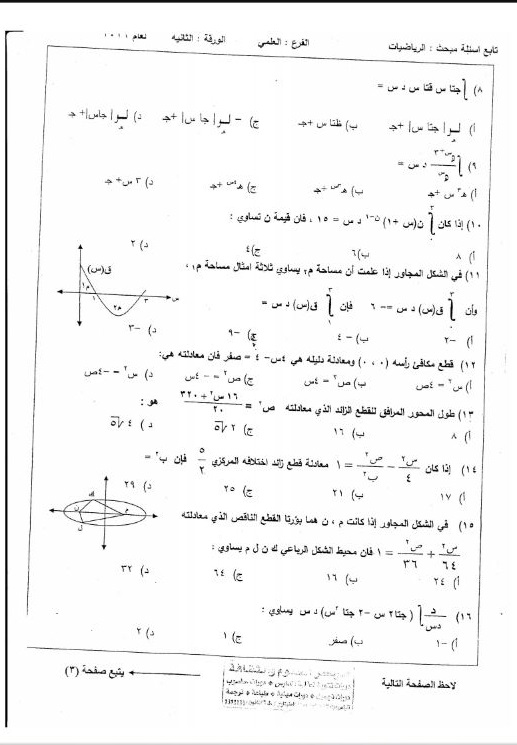 تابع اسئلة مبحث : الرياضيات الفرع : العلمي الورقة : الثانيه لعام
٨) ∫ جتا س قتا س د س =
أ) لو | جتا س | + جـ ب) ظتا س + جـ ج) - لو | جا س | + جـ د) لو | جاس | + جـ
٩) ∫ هـ^(س+٣) / هـ^س د س =
أ) هـ^٣ س + جـ ب) هـ^٣س + جـ ج) + جـ د) ٣ س + جـ
١٠) إذا كان ∫ ن(س + ١)^(ن-١) د س = ١٥ ، فان قيمة ن تساوي :
أ) ٨ ب) ٦ ج) ٤ د) ٢
١١) في الشكل المجاور إذا علمت أن مساحة م٢ يساوي ثلاثة امثال مساحة م١ ،
ق(س)
م١
م٢
١ ٣ س
وأن ∫ ق(س) د س = - ٦ فإن ∫ ق(س) د س =
أ) -٢ ب) - ٤ ج) -٩ د) -٣
١٢) قطع مكافئ رأسه (٠ ، ٠) ومعادلة دليله هي ٤س - ٤ = صفر فان معادلته هي:
أ) س٢ = ٤ص ب) ص٢ = ٤س ج) ص٢ = - ٤س د) س٢ = -٤ص
١٣) طول المحور المرافق للقطع الزائد الذي معادلته ص٢ = (١٦ س٢ + ٣٢٠) / ٢٠ هو :
أ) ٨ ب) ١٦ ج) ٢√٥ د) ٤√٥
١٤) إذا كان س٢/٤ - ص٢/ب٢ = ١ معادلة قطع زائد اختلافه المركزي ٥/٢ فإن ب٢ =
أ) ١٧ ب) ٢١ ج) ٢٥ د) ٢٩
١٥) في الشكل المجاور إذا كانت م ، ن هما بؤرتا القطع الناقص الذي معادلته
ك
ن م
ل
س٢/٦٤ + ص٢/٣٦ = ١ فان محيط الشكل الرباعي ك ن ل م يساوي :
أ) ٢٤ ب) ١٦ ج) ٦٤ د) ٣٢
١٦) د/دس ∫ ( جتا٢ س - ٢ جتا٢ س) د س يساوي :
أ) -١ ب) صفر ج) ١ د) ٢
لاحظ الصفحة التالية يتبع صفحة (٣)